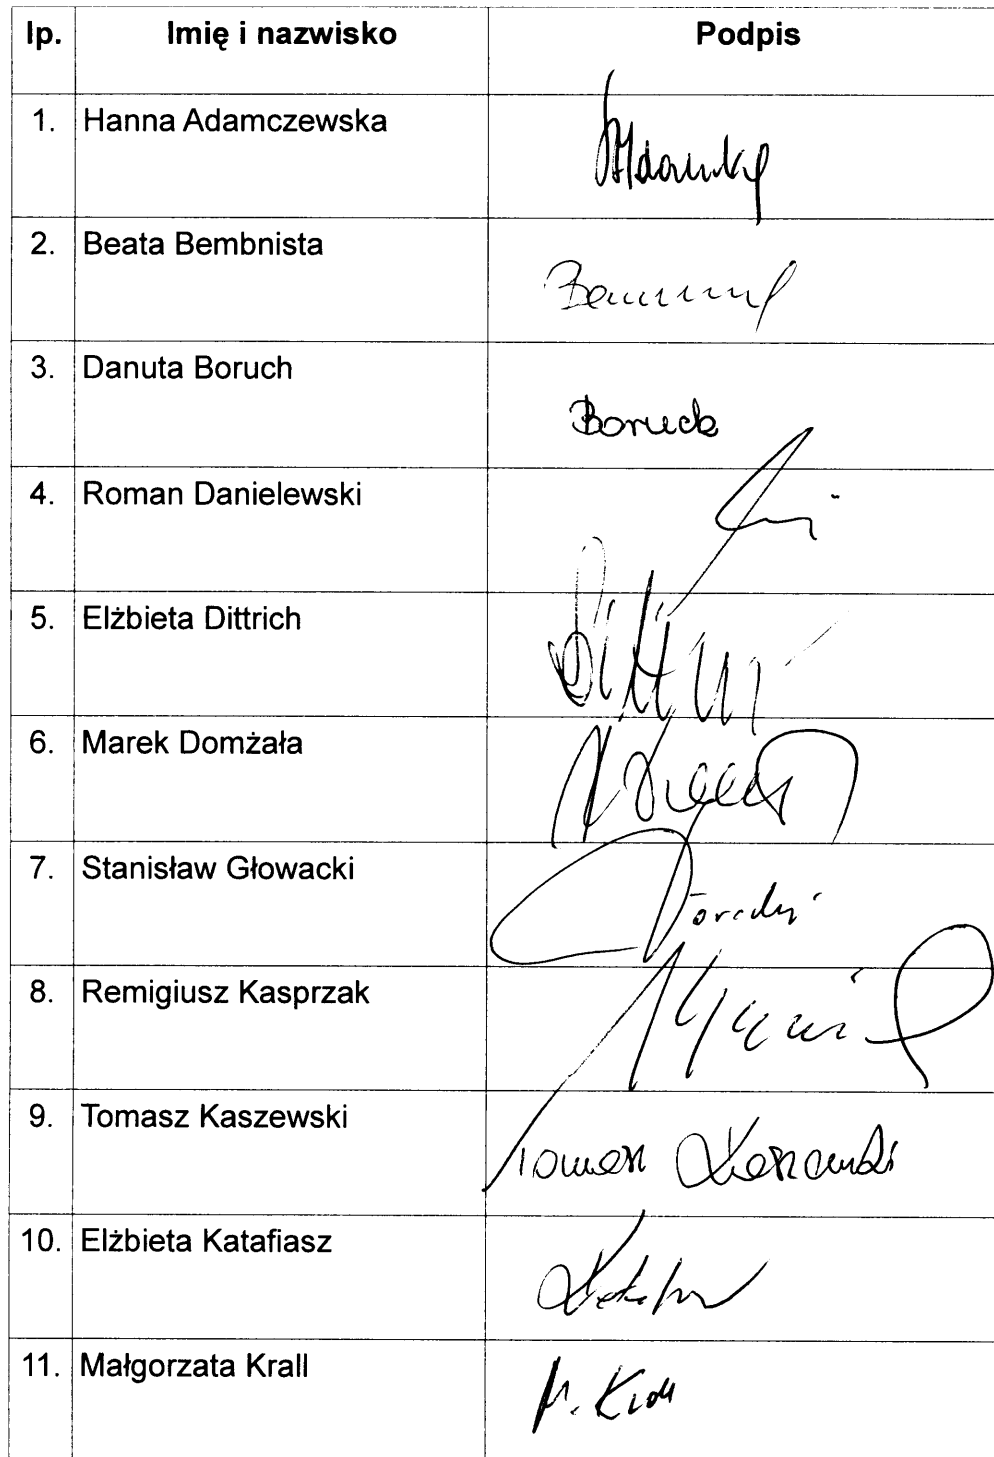 lp. Imię i nazwisko Podpis
1. Hanna Adamczewska
2. Beata Bembnista
3. Danuta Boruch Boruch
4. Roman Danielewski
5. Elżbieta Dittrich
6. Marek Domżała
7. Stanisław Głowacki
8. Remigiusz Kasprzak
9. Tomasz Kaszewski Tomasz Kaszewski
10. Elżbieta Katafiasz
11. Małgorzata Krall M. Krall